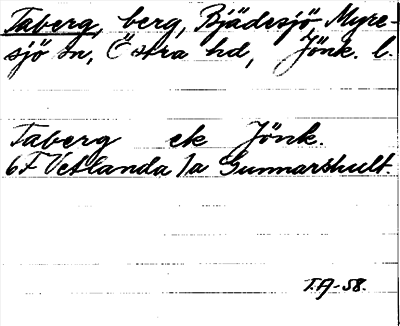 Taberg, berg, Bjädesjö Myre-
sjö sn, Östra hd, Jönk. l.
Taberg ek Jönk.
6F Vetlanda 1a Gunnarshult.
T.A-58.